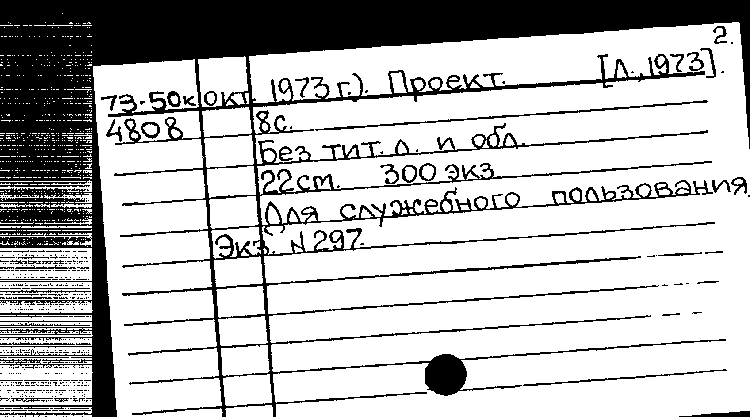 2.
73-50к окт. 1973 г.). Проект. [Л., 1973].
4808 8с.
Без тит. л. и обл.
22см. 300 экз.
Для служебного пользования
Экз. N297.